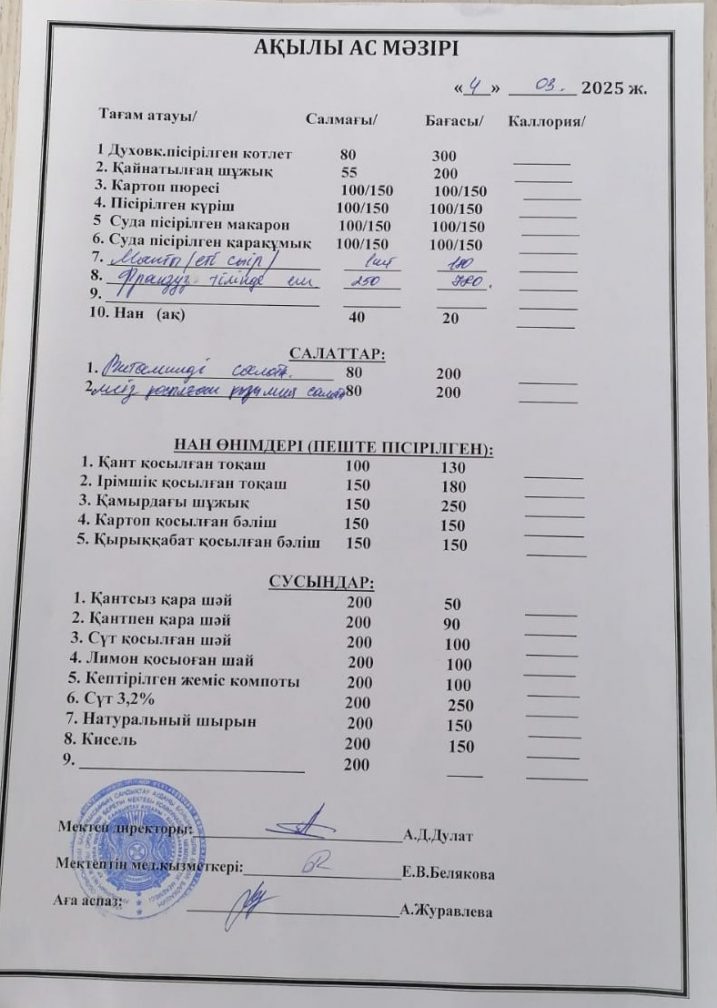 АҚЫЛЫ АС МӘЗІРІ
«4» 03. 2025 ж.
Тағам атауы/ Салмағы/ Бағасы/ Каллория/
1 Духовк.пісірілген котлет 80 300
2. Қайнатылғаң шұжық 55 200
3. Картоп пюресі 100/150 100/150
4. Пісірілген күріш 100/150 100/150
5 Суда пісірілген макарон 100/150 100/150
6. Суда пісірілген қарақұмық 100/150 100/150
7. Манты (еті сыір) 1шт
8. Француз тілінде ет 250
9.
10. Нан (ақ) 40 20
САЛАТТАР:
1. Витаминді салат. 80 200
2. салат 80 200
НАН ӨНІМДЕРІ (ПЕШТЕ ПІСІРІЛГЕН):
1. Қант қосылған тоқаш 100 130
2. Ірімшік қосылған тоқаш 150 180
3. Қамырдағы шұжық 150 250
4. Картоп қосылған бәліш 150 150
5. Қырыққабат қосылған бәліш 150 150
СУСЫНДАР:
1. Қантсыз қара шәй 200 50
2. Қантпен қара шәй 200 90
3. Сүт қосылған шәй 200 100
4. Лимон қосыоған шай 200 100
5. Кептірілген жеміс компоты 200 100
6. Сүт 3,2% 200 250
7. Натуральный шырын 200 150
8. Кисель 200 150
9. 200
Мектеп директоры: А.Д.Дулат
Мектептін мед.қызметкері: Е.В.Белякова
Аға аспаз: А.Журавлева